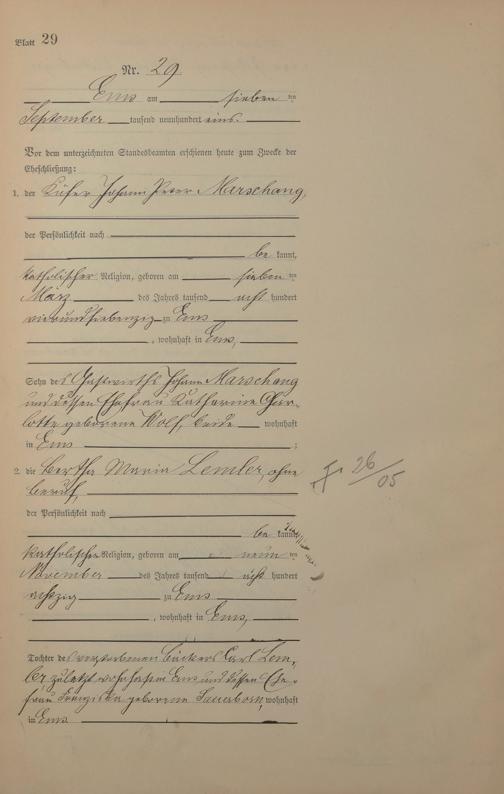 Blatt 29
Nr. 29
Ems am sieben ten
September tausend neunhundert eins.
Vor dem unterzeichneten Standesbeamten erschienen heute zum Zwecke der
Eheschließung:
1. der Küfer Johann Peter Marschang,
der Persönlichkeit nach
be kannt,
katholischer Religion, geboren am sieben ten
März des Jahres tausend acht hundert
vierundsiebenzig zu Ems
, wohnhaft in Ems,
Sohn des Gastwirths Johann Marschang
und dessen Ehefrau Katharine Char-
lotte geborene Wolf, beide wohnhaft
in Ems ;
2. die Bertha Maria Lemler, ohne
Beruf,
der Persönlichkeit nach
be kannt,
katholischer Religion, geboren am neun ten
November des Jahres tausend acht hundert
achtzig zu Ems
, wohnhaft in Ems,
Tochter des verstorbenen Bäckers Carl Lem-
ler zuletzt wohnhaft in Ems und dessen Ehe-
frau Franziska geborene Sauerborn, wohnhaft
in Ems
26/05